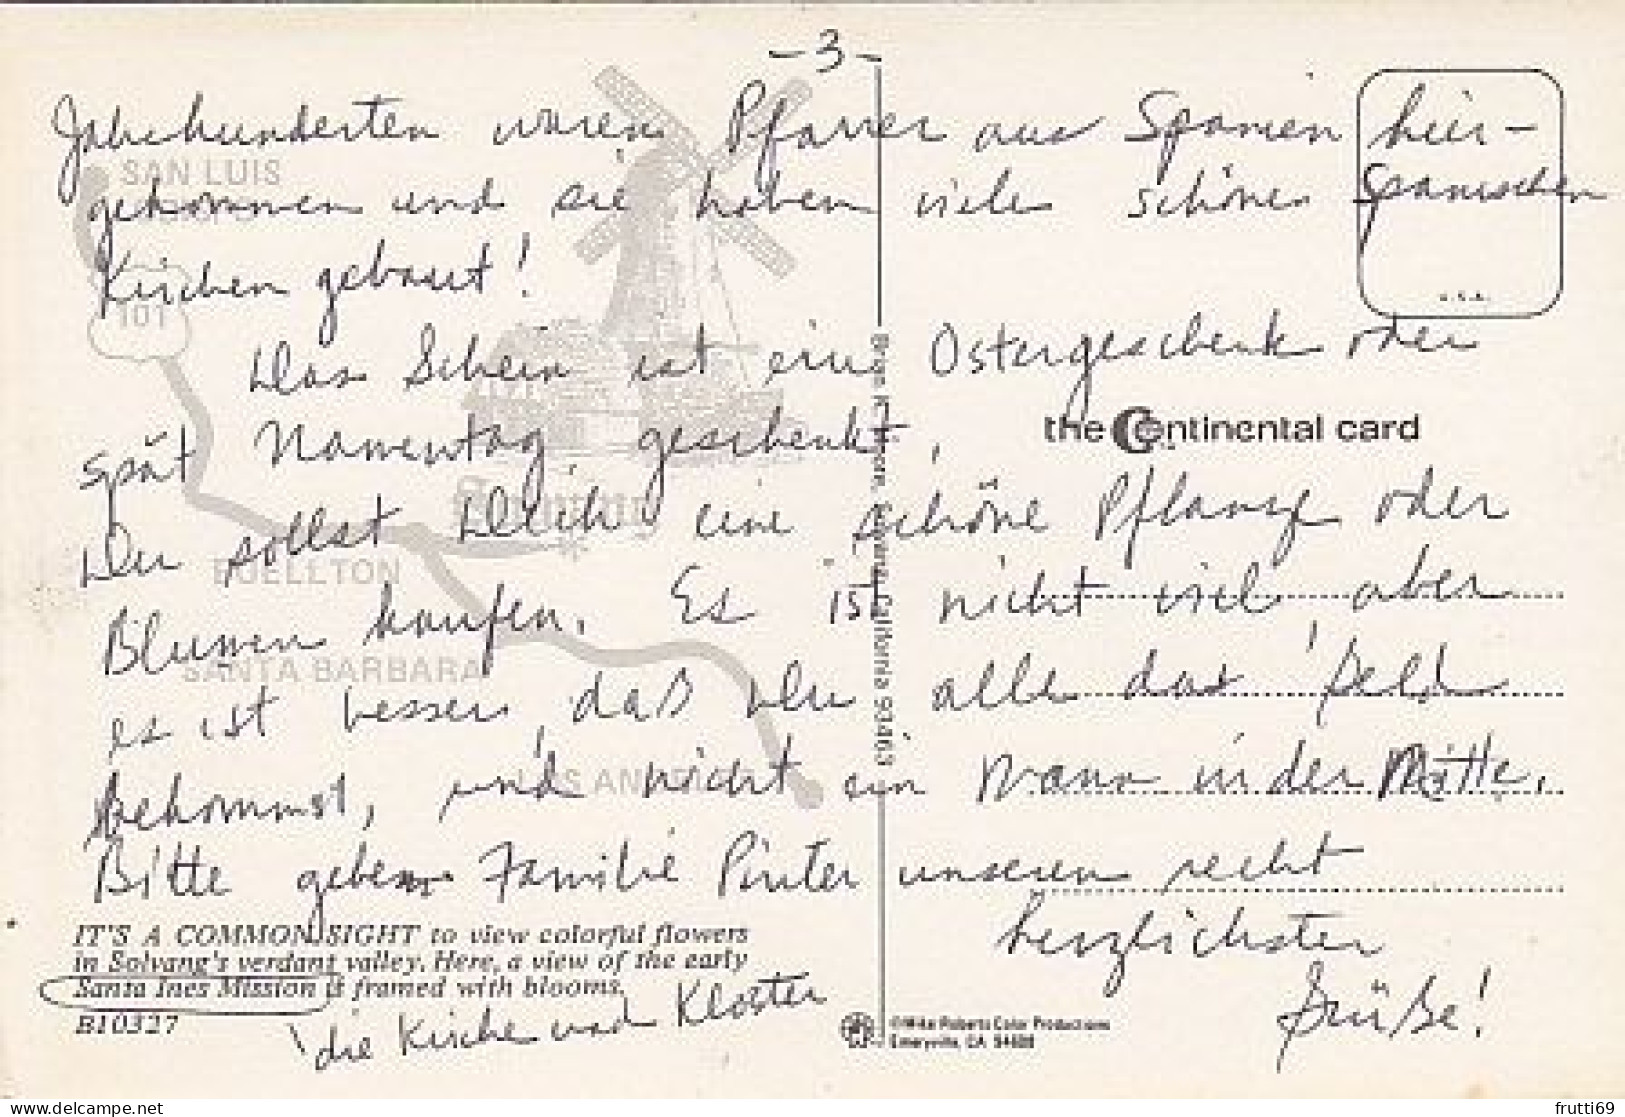 -3-
Jahrhunderten waren Pfarrer aus Spanien hier-
gekommen und sie haben viele schöne Spanischen
Kirchen gebaut!
Das Schein ist ein Ostergeschenk oder
spät Namenstag geschenkt,
Du sollst Dich eine schöne Pflanze oder
Blumen kaufen. Es ist nicht viel, aber
es ist besser, daß Du alle das Geld
bekommst, und nicht ein Mann in der Mitte.
Bitte geben Familie Pinter unseren recht
herzlichster
Grüße!
SAN LUIS
101
BUELLTON
SANTA BARBARA
LOS ANGELES
U.S.A.
the Continental card
California 93463
IT'S A COMMON SIGHT to view colorful flowers
in Solvang's verdant valley. Here, a view of the early
Santa Ines Mission is framed with blooms.
B10327
die Kirche und Kloster
©Mike Roberts Color Productions
Emeryville, CA 94608
delcampe.net
frutti69